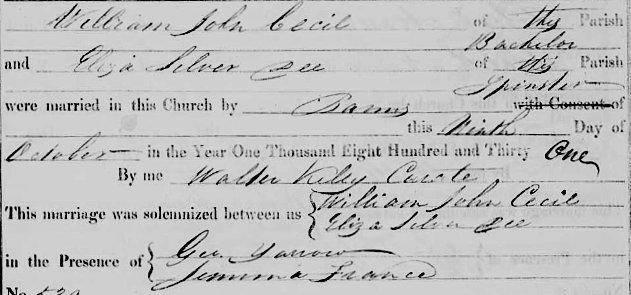 William John Cecil of this Parish
Bachelor
and Eliza Silver Dee of this Parish
Spinster
were married in this Church by Banns with Consent of
this Ninth Day of
October in the Year One Thousand Eight Hundred and Thirty One
By me Walter Kelly Curate
This marriage was solemnized between us { William John Cecil
Eliza Silver Dee
in the Presence of { Geo. Yarrow
Jemima France
No.